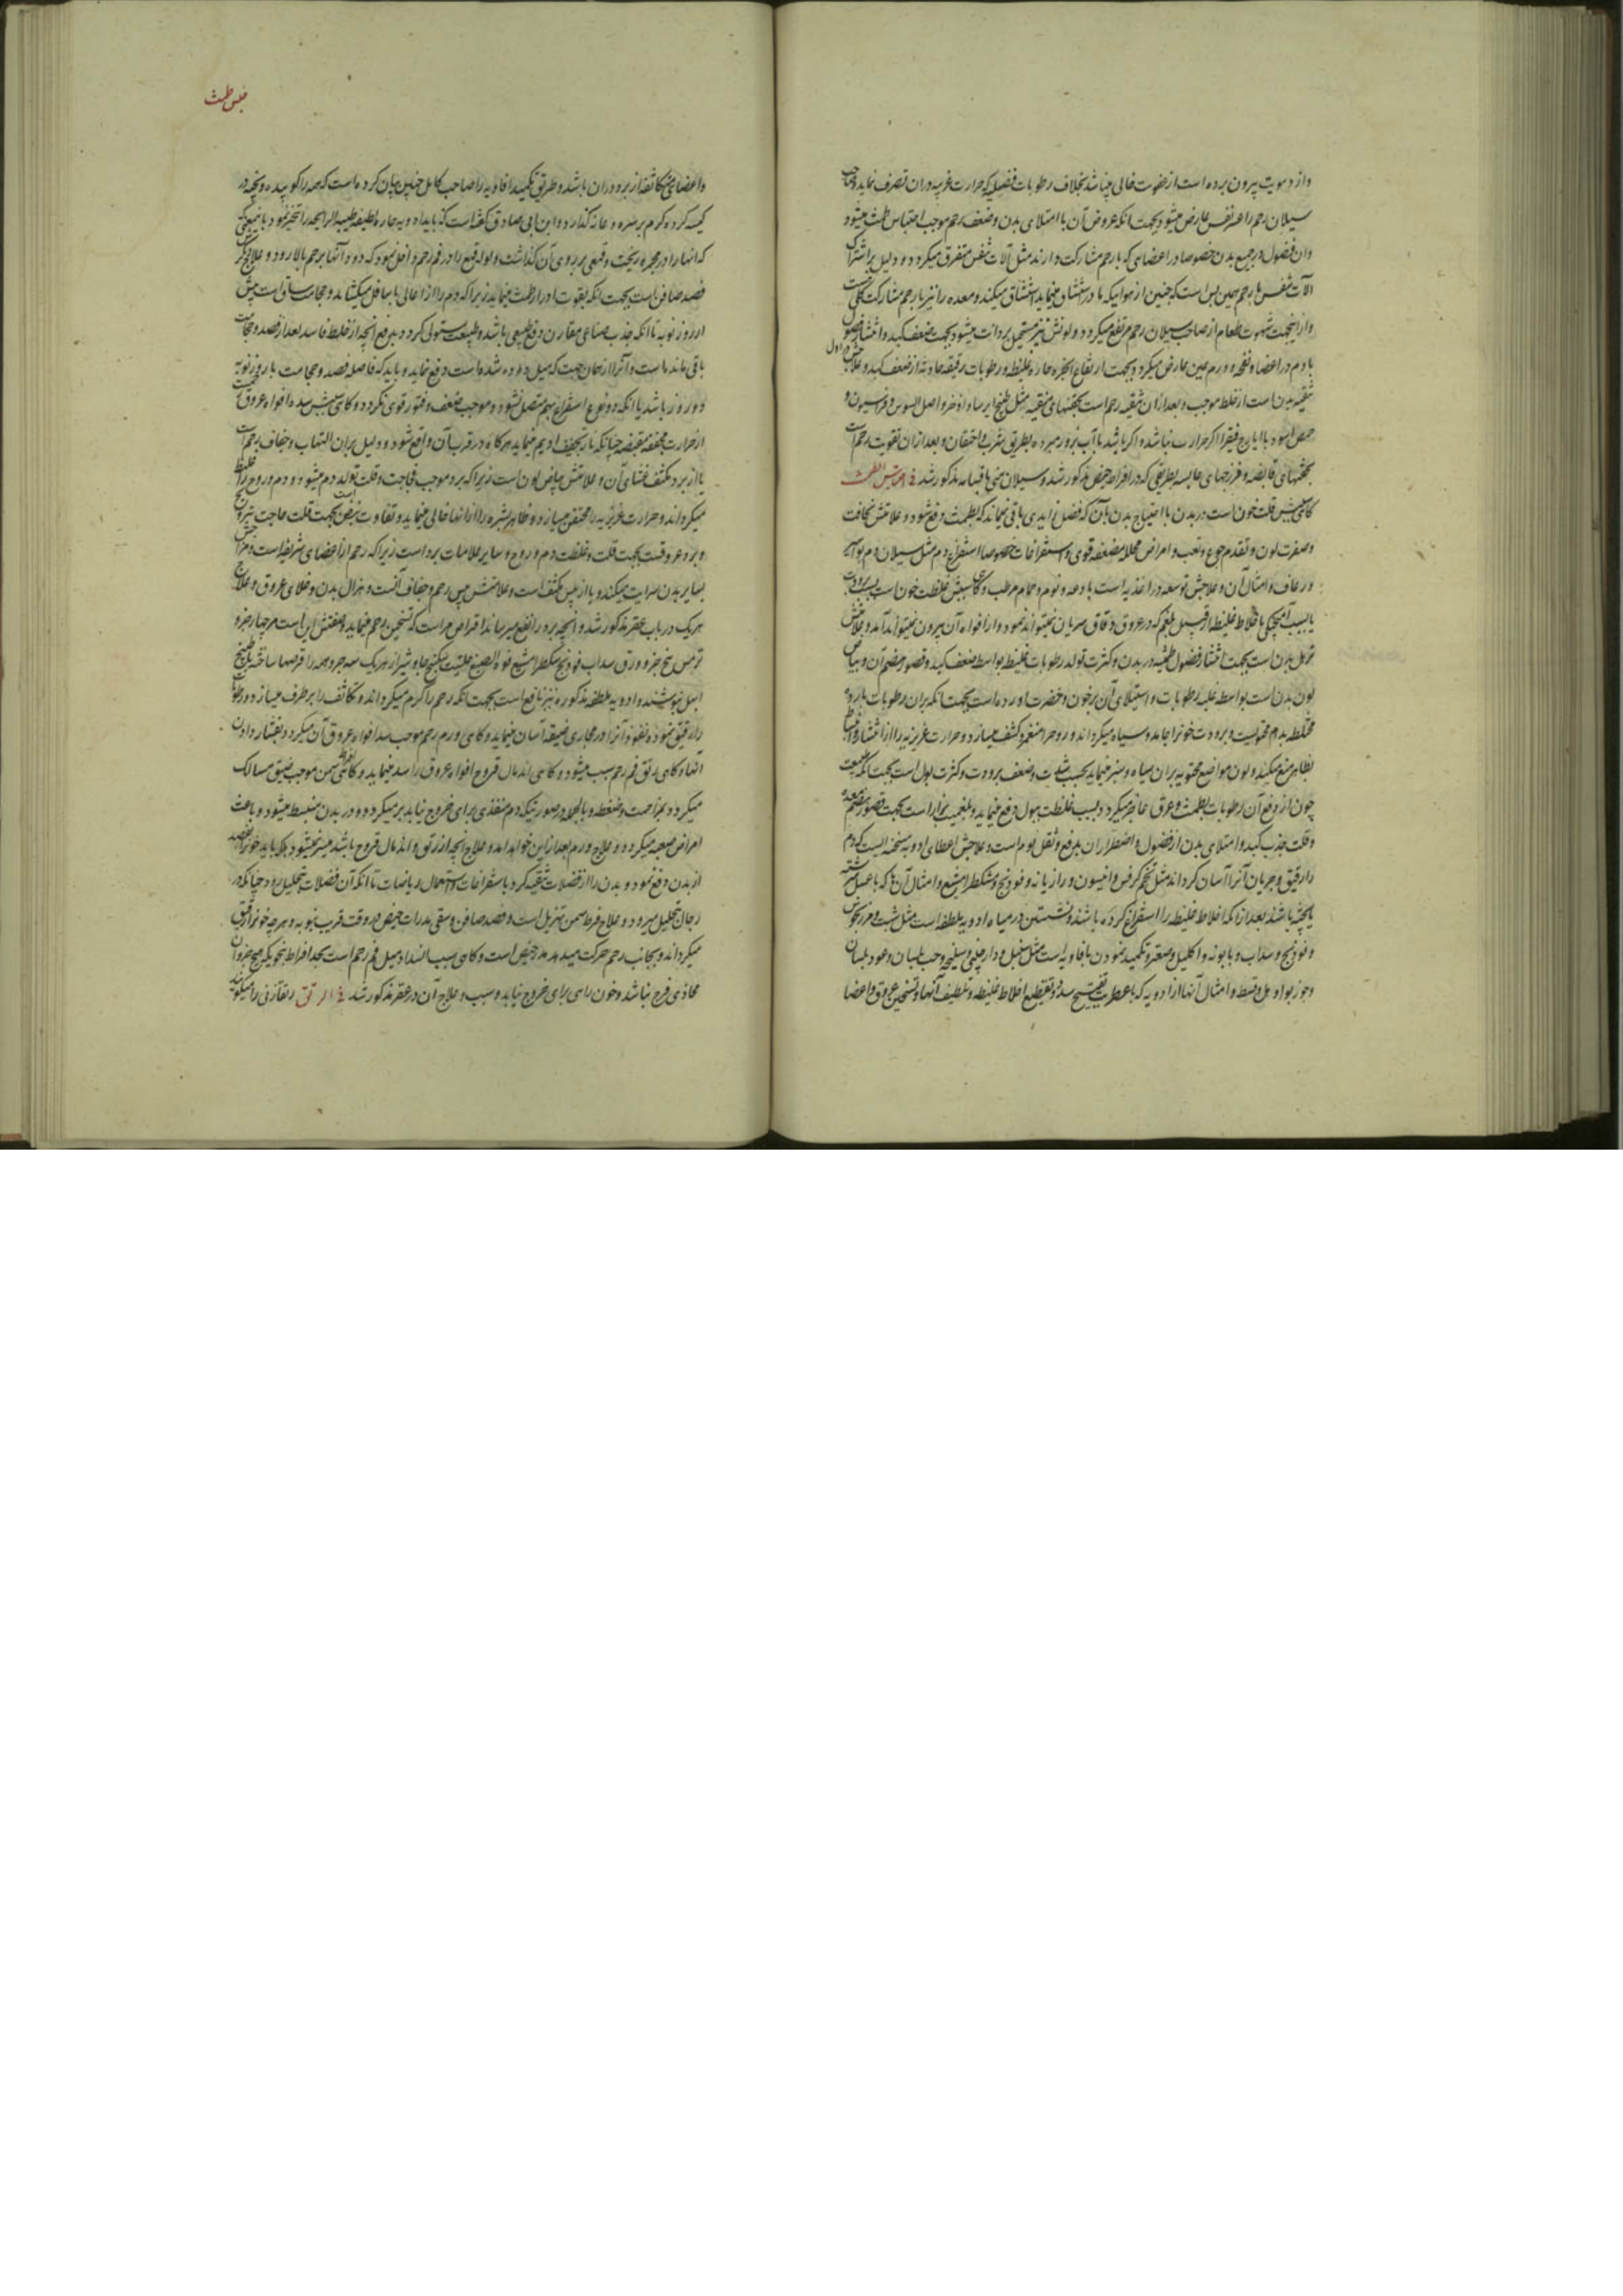 واز دمویت بیرون برده است از عفونت خالی میباشد بخلاف رطوبات فضلیه که حرارت غریبه دران تصرف نماید وصاحب
سیلان رحم را عسر نفس عارض میشود بجهت انکه عروض آن با امتلای بدن وضعف رحم موجب احتباس طمث میشود
وان فضول در جمیع بدن خصوصا در اعضای که با رحم مشارکت دارند مثل آلات تنفس متفرق میکردد ودلیل بر اشتراک
آلات تنفس با رحم همین بس است که جنین از هوائیکه مادر استنشاق مینماید استنشاق میکند ومعده را نیز با رحم مشارکت کلی است
وازینجهت شهوت طعام از صاحب سیلان رحم مرتفع میکردد ولونش نیز مستحیل بردائت میشود بجهت ضعف کبد وانتشار فضول
با دم در اعضا ونفخه وورم عین عارض میکردد بجهت ارتفاع ابخره حاره غلیظه ورطوبات رقیقه حادثه از ضعف کبد وعلاجش اول
تنقیه بدن است از خلط موجب وبعد ازان تنقیه رحم است بحقنهای منقیه مثل طبیخ ایرسا واذخر واصل السوس وفراسیون و
حمص اسود با ایارج فیقرا اکر حرارت نباشد واکر باشد با آب بزور مبرده بطریق شرب واحتقان وبعد ازان تقویت رحم است
بحقنهای قابضه وفرزجهای حابسه بطریقی که در افراط حیض مذکور شد وسیلان منی باقسامه مذکور شد فی احتباس الطمث
کاهی سببش قلت خون است در بدن با احتیاج بدن بآن که فضل زایدی باقی نمیماند که بطمث دفع شود وعلامتش نحافت
وصفرت لون وتقدم جوع وتعب وامراض محلله مضعفه قوی واستفراغات خصوصا استفراغ دم مثل سیلان دم بواسیر
ورعاف وامثال آن وعلاجش توسعه در اغذیه است با دعه ونوم وحمام مرطب وکاهی سببش غلظت خون است بسبب برودت
یا بسبب آمیختکی با اخلاط غلیظه از قبیل بلغم که در عروق دقاق سریان نمیتواند نمود واز افواه آن بیرون نمیتواند آمد وعلامتش
ترهل بدن است بجهت انتشار فضول طمثیه در بدن وکثرت تولد رطوبات غلیظه بواسطه ضعف کبد وقصور هضم آن وبیاض
لون بدن است بواسطه غلبه رطوبات واستیلای آن بر خون وخضرت اورده است بجهت انکه بران رطوبات بارده
مختلطه بدم محتویست وبرودت خونرا جامد وسیاه میکرداند وروح را منغمر وکثیف میسازد وحرارت غریزیه را از انتشار وانبساط
بظاهر منع میکند ولون مواضع محتویه بران سیاه وسبز مینماید بحسب شدت وضعف برودت وکثرت بول است بجهت انکه طبیعت
چون از دفع آن رطوبات بطمث وعرق عاجز میکردد بسبب غلظت ببول دفع مینماید وبلغمیت براز است بجهت قصور هضم معده
وقلت جذب کبد وامتلای بدن از فضول واضطرار ان بدفع وثقل نوم است وعلاجش اعطای ادویه مسخنه ایست که دم
را رقیق وجریان آنرا آسان کرداند مثل تخم کرفس وانیسون ورازیانه وفودنج ومشکطرامشیع وامثال آن آنها که با عسل سرشته
یا پخته باشند بعد ازانکه اخلاط غلیظه را استفراغ کرده باشند ونشستن در میاه ادویه ملطفه است مثل شبت ومرزنجوش
وفودنج وسداب وبابونه واکلیل وصعتر وتکمید نمودن بافاویه است مثل سنبل ودارچینی وسلیخه وحب بلسان وعود بلسان
وجوز بوا وهل وقسط وامثال آنها از ادویه که باعطریت تفتیح سدد وتقطیع اخلاط غلیظه وتلطیف آنها وتسخین عروق واعضا
حبس طمث
واعضای متکاثفه از برد دران باشد وطریق تکمید افاویه را صاحب کامل چنین بیان کرده است که همه را کوبیده وپخته در
کیسه کرده کرم بر سره وعانه کذارد وابن ابی صادق کفته است که باید ادویه حاره لطیفه طیبه الرایحه را تبخیر نمود باینمعنی
که انها را در مجمره ریخت وقمعی بر روی آن کذاشت ولوله قمع را در فم رحم داخل نمود که دود آنها برحم بالا رود وعلاج دیکر
فصد صافن است بجهت انکه بقوت ادرار طمث مینماید زیرا که دم را از اعالی باسافل میکشاند وحجامت ساق است پیش
از روز نوبه تا انکه جذب صناعی مقارن دفع طبیعی باشد وطبیعت مستولی کردد بدفع انچه از خلط فاسد بعد از فصد وحجامت
باقی مانده است وآنرا ازهمان جهت که میل داده شده است دفع نماید وباید که فاصله فصد وحجامت با روز نوبه
دو روز باشد یا انکه دو نوع استفراغ بهم متصل نشود وموجب ضعف وفتور قوی نکردد وکاهی سببش سده افواه عروق است
از حرارت مجففه مقبضه چنانکه نار تجفیف ادیم مینماید هرکاه در قرب آن واقع شود ودلیل بران التهاب وجفاف رحم است
یا از برد مکثف منشای آن وعلامتش بیاض لون است زیرا که برد موجب فجاجت وقلت تولد دم میشود ودم وروح را غلیظ
میکرداند وحرارت غریزیه را محتقن میسازد وظاهر بشره را از انها خالی مینماید وتفاوت نبض است بجهت قلت حاجت بترویح
وبرد عروقست بجهت قلت وغلظت دم وروح وسایر علامات برد است زیرا که رحم از اعضای شریفه است ومزاجش
بسایر بدن سرایت میکند ویا از یبس مکثف است وعلامتش یبس رحم وجفاف آنست وهزال بدن وخلای عروق وعلاج
هریک در باب عقر مذکور شد وانچه برد را نفع میرساند اقراص مر است که تسخین رحم مینماید وصفتش این است مر چهار جزو
ترمس پنج جزو ورق سداب فودنج مشکطرامشیع فوه الصبغ حلتیت سکبینج جاوشیر از هریک سه جزو همه را قرصها ساخته با طبیخ
ابهل بنوشند وادویه ملطفه مذکوره نیز نافع است بجهت انکه رحم را کرم میکرداند وتکاثف را برطرف میسازد ورطوبات
را رقیق نموده نفوذ آنرا در مجاری ضیقه آسان مینماید وکاهی ورم رحم موجب سد افواه عروق آن میکردد بفشار دادن
انها وکاهی رتق فم رحم سبب میشود وکاهی اندمال قروح افواه عروق را سد مینماید وکاهی افراط سمن موجب ضیق مسالک
میکردد بمزاحمت وضغطه وبالجمله درصورتیکه دم منفذی برای خروج نیابد برمیکردد ودر بدن منبسط میشود وباعث
امراض صعبه میکردد وعلاج ورم بعد ازین خواهد آمد وعلاج انچه از رتق واندمال قروح باشد میسر نمیشود بلکه باید خونرا بفصد
از بدن دفع نمود وبدن را از فضلات تنقیه کرد باستفراغات واستعمال ریاضات تا انکه آن فضلات بتحلیل رود چنانکه در
رجال بتحلیل میرود وعلاج فرط سمن تهزیل است وفصد صافن وسقی مدرات حیض در وقت قریب بنوبه وهرچه خونرا رقیق
میکرداند وبجانب رحم حرکت میدهد مدر حیض است وکاهی سبب انسداد میل فم رحم است بحد افراط بنحویکه هیچ جزو آن
محاذی فرج نباشد وخون راهی برای خروج نیابد وسبب وعلاج آن در عقر مذکور شد فی الرتق رتقا زنی را میکویند